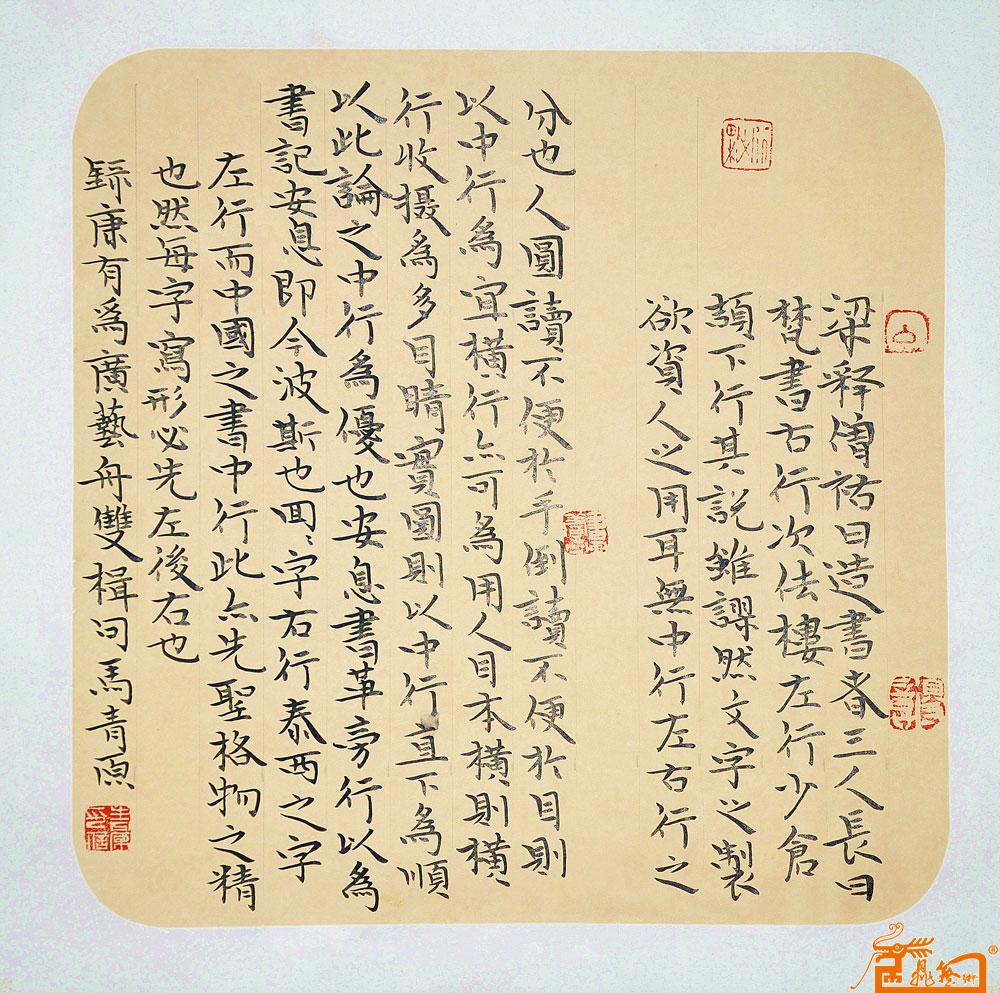 梁释僧祐曰造書者三人長曰
梵書右行次佉樓左行少倉
頡下行其説雖謬然文字之製
欲資人之用耳無中行左右行之
分也人圓讀不便於手倒讀不便於目則
以中行為宜橫行亦可為用人目本橫則橫
行收摄為多目睛實圓則以中行直下為順
以此論之中行為優也安息書革旁行以為
書記安息即今波斯也回〻字右行泰西之字
左行而中國之書中行此亦先聖格物之精
也然每字寫形必先左後右也
録康有為廣藝舟雙楫句馬青原